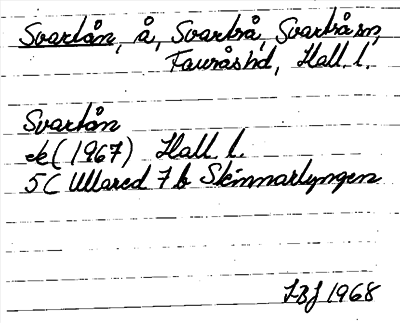 Svartån, å, Svartrå, Svartrå sn,
Fauråshd, Hall l.
Svartån
ek (1967) Hall l.
5C Ullared 7 b Skinnarlyngen
JBJ 1968